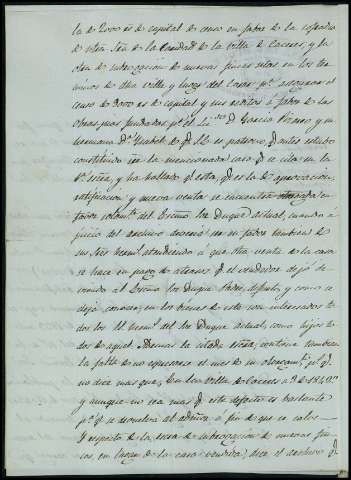 la de 2000 rs de capital de censo en favor de la cofradia
de otra Sra de la Caridad de la Villa de Caceres, y la
otra de subrogacion de nuevas fincas sitas en los ter
minos de dha villa y lugar del Casar pa asegurar el
censo de 3000 rs de capital y sus reditos a favor de las
obras pias fundadas pr el Ldo Dn Garcia y su
hermana Da Ysabel de qe S.E. es patrono qe antes estubo
constituido en la mencionada casa qe se cita en la
1a escra, y ha hallado qe esta, qe es la de aprovacion,
ratificacion y nueva venta se encuentra otorgada en
favor solamte del Excmo Sor Duque actual, cuando á
juicio del archivo deveria en favor tambien de
sus tres herms atendiendo á que dha venta de la casa
se hace en pago de atrasos qe el vendedor dejó de
viendo al Excmo Sor Duque Padre, difunto, y como se
deja conocer, en los bienes de este son interesados to
dos los herms del Sor Duque actual, como hijos to
dos de aquel. Ademas la citada escra, contiene tambien
la falta de no espresarse el mes de su otorgamto pr qe
no dice mas que, En la villa de Caceres a 3 de 1842
y aunque no sea mas qe este defecto es bastante
pa qe se devuelva al admor á fin de que se salve.
Y respecto de la escra de subrogacion de nuevas fin
cas, en lugar de la casa vendida, dice el archivo qe